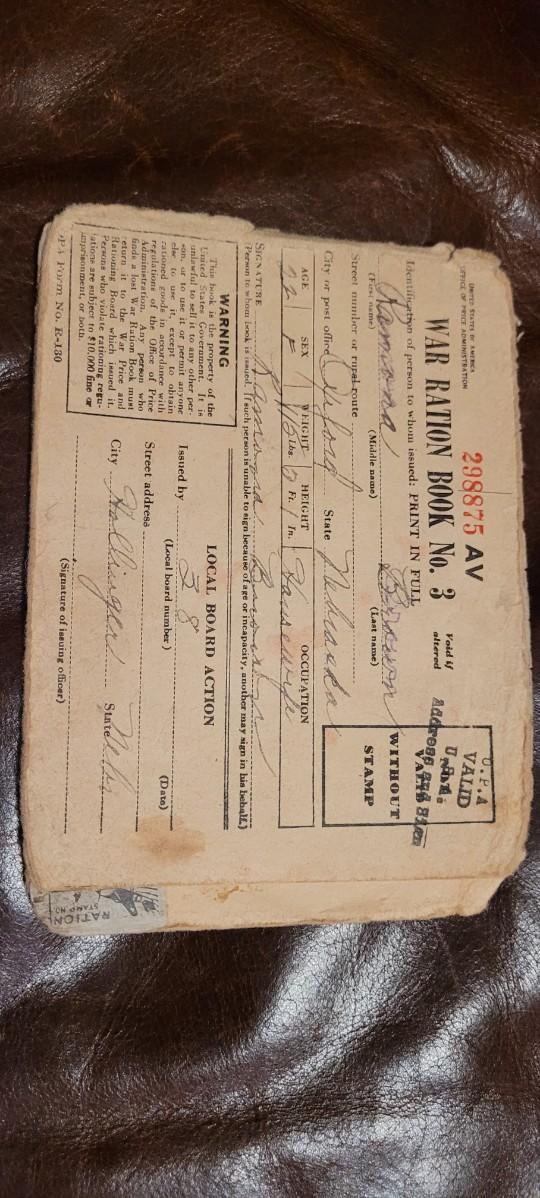 UNITED STATES OF AMERICA
OFFICE OF PRICE ADMINISTRATION
298875 AV
WAR RATION BOOK No. 3
Void if
altered
Identification of person to whom issued: PRINT IN FULL
Ramona Brown
(First name) (Middle name) (Last name)
Street number or rural route
City or post office Oxford State Nebraska
AGE SEX WEIGHT HEIGHT OCCUPATION
22 F Lbs. 5 Ft. 1 In. Housewife
SIGNATURE Ramona Brown
(Person to whom book is issued. If such person is unable to sign because of age or incapacity, another may sign in his behalf.)
O.P.A
VALID
WITHOUT
STAMP
WARNING
This book is the property of the
United States Government. It is
unlawful to sell it to any other per-
son, or to use it or permit anyone
else to use it, except to obtain
rationed goods in accordance with
regulations of the Office of Price
Administration. Any person who
finds a lost War Ration Book must
return it to the War Price and
Rationing Board which issued it.
Persons who violate rationing regu-
lations are subject to $10,000 fine or
imprisonment, or both.
LOCAL BOARD ACTION
Issued by 38
(Local board number) (Date)
Street address
City Hollinger State Nebr
(Signature of issuing officer)
OPA Form No. R-130
RATION
STAMP NO.
4